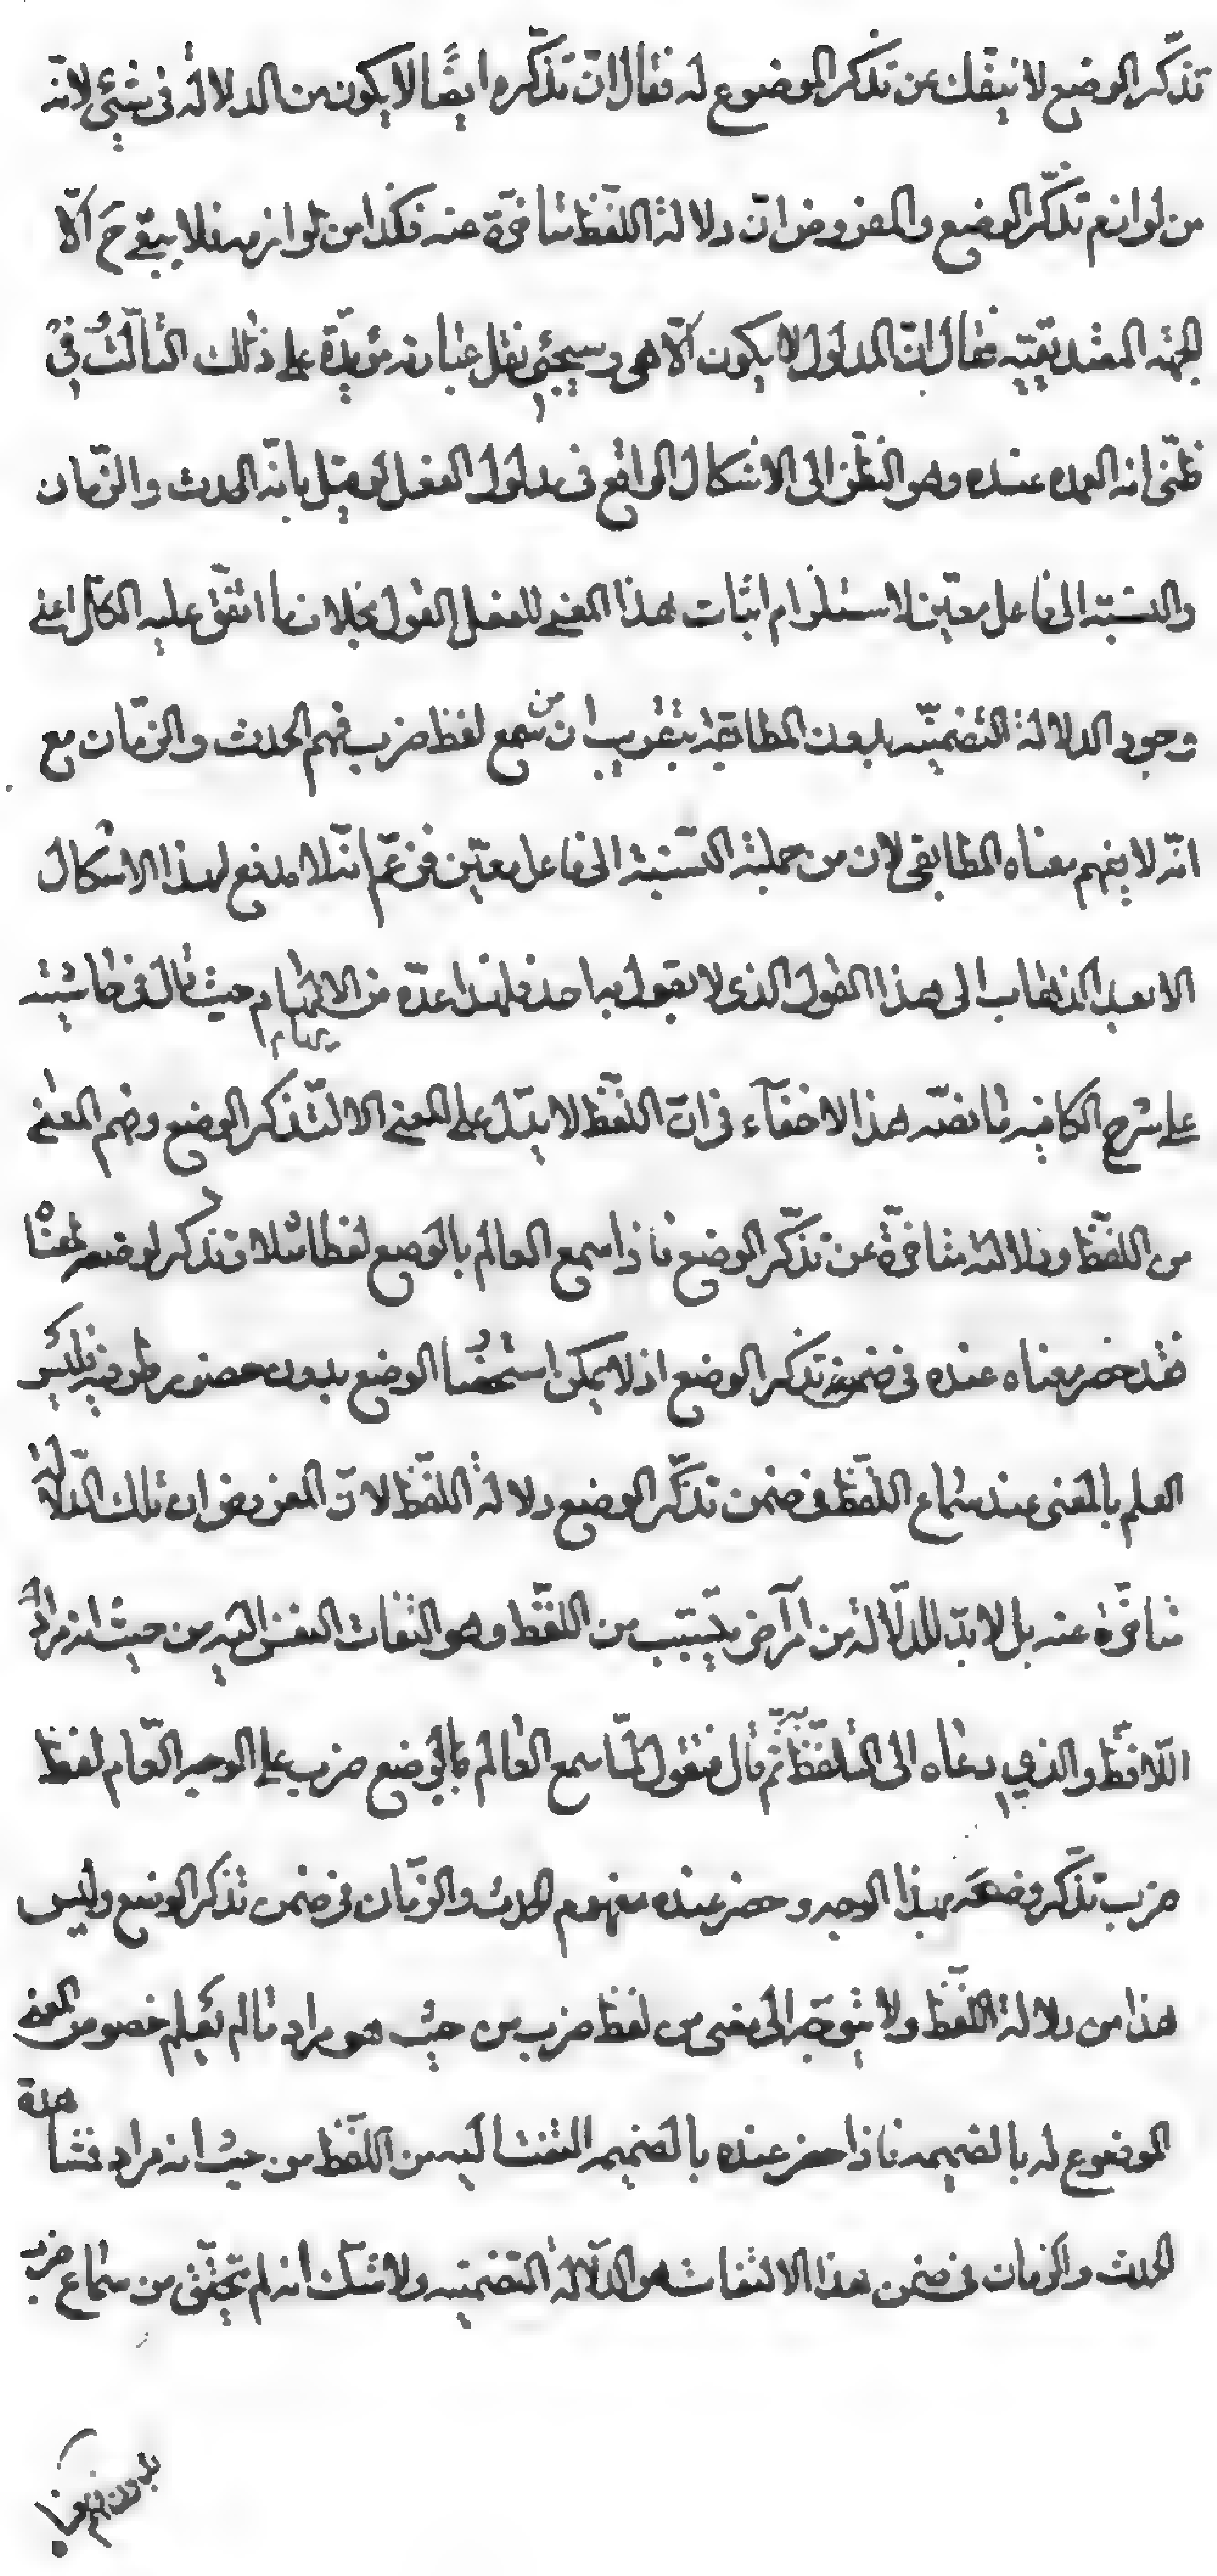 تذكّر الوضع لا ينفك عن تذكر الموضوع له فقال انّ تذكّره ايضًا لا يكون من الدلالة فى شئى لانّه
من لوازم تذكّر الوضع والمفروض انّ دلالة اللفظ متاخرة عنه فكذا من لوازمه فلا يبقى ح الّا
الجهة المقديقيّه فقال انّ المدلول لا يكون الّا هى وسيجئى نقل عبارته مؤيدة على ذلك الثالث فى
ظنّى انه العمده عنده وهو التفطّن الى الاشكال الواقع فى مدلول الفعل لو قيل بانّه الحدث والزّمان
والنسبة الى فاعل معيّن لاستلزام اثبات هذا المعنى للفعل القول بخلاف ما اتفق عليه الكلّ اعنى
وجود الدلالة التضمنيّه بدون المطابقة بتقريب انّ من سمع لفظ ضرب فهم الحدث والزّمان مع
انّه لا يفهم معناه المطابقى لان من جملته النسبة الى فاعل معيّن فزعم انّه لا مدفع لهذا الاشكال
الا بعد الذهاب الى هذا القول الذى لا يقول به احد فلهذا عدّه من الالهام حيث قال فى حاشيته
على شرح الكافيه ما نصّه هذا لا خفآء فى انّ اللّفظ لا يدّل على المعنى الا لتذكر الوضع وفهم المعنى
من اللفظ ودلالته متاخرّة عن تذكّر الوضع فاذا سمع العالم بالوضع لفظا مثلا وتذكر وضعه لمعناه
فقد حضر معناه عنده فى ضمن تذكر الوضع اذ لا يمكن استحضار الوضع بدون حضور طرفيه فليس
العلم بالمعنى عند سماع اللّفظ فى ضمن تذكّر الوضع دلالة اللّفظ لانّ المفروض ان تلك الدّلالة
متاخّرة عنه بل لا بدّ للدّلالة من امر آخر يتسبّب من اللّفظ وهو التفات النفس اليه من حيث انه مراد
اللّافظ والذى دعاه الى التلفّظ به ثم قال فنقول لمّا سمع العالم بالوضع ضرب على الوجه العّام لفظ
ضرب تذكّر وضعه بهذا الوجه وحضر عنده مفهوم الحدث والزّمان فى ضمن تذكر الوضع وليس
هذا من دلالة اللّفظ ولا يتوجّه الى معنى من لفظ ضرب من حيث هو مراد ما لم يعلم خصوص المعنى
الموضوع له بالضميمه فاذا حضر عنده بالضميمه التفت اليه من اللّفظ من حيث انه مراد فمشاهدة
الحدث والزمان فى ضمن هذا الالتفات هو الدّلالة التضمنيه ولا شك انه لم يتحقّق من سماع ضرب